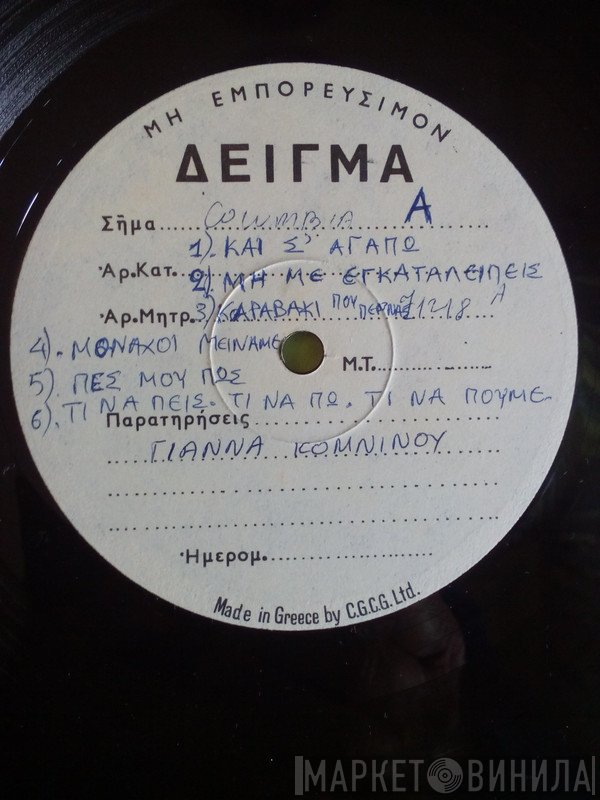 ΜΗ ΕΜΠΟΡΕΥΣΙΜΟΝ
ΔΕΙΓΜΑ
Σῆμα COLUMBIA A
1). ΚΑΙ Σ' ΑΓΑΠΩ
Ἀρ.Κατ. 2). ΜΗ ΜΕ ΕΓΚΑΤΑΛΕΙΠΕΙΣ
Ἀρ.Μητρ. 3). ΚΑΡΑΒΑΚΙ ΠΟΥ ΠΕΡΝΑΣ 71218 A
4). ΜΟΝΑΧΟΙ ΜΕΙΝΑΜΕ
Μ.Τ.
5). ΠΕΣ ΜΟΥ ΠΩΣ
6). ΤΙ ΝΑ ΠΕΙΣ. ΤΙ ΝΑ ΠΩ. ΤΙ ΝΑ ΠΟΥΜΕ
Παρατηρήσεις
ΓΙΑΝΝΑ ΚΟΜΝΙΝΟΥ
Ἡμερομ.
Made in Greece by C.G.C.G. Ltd.
МАРКЕТ ВИНИЛА